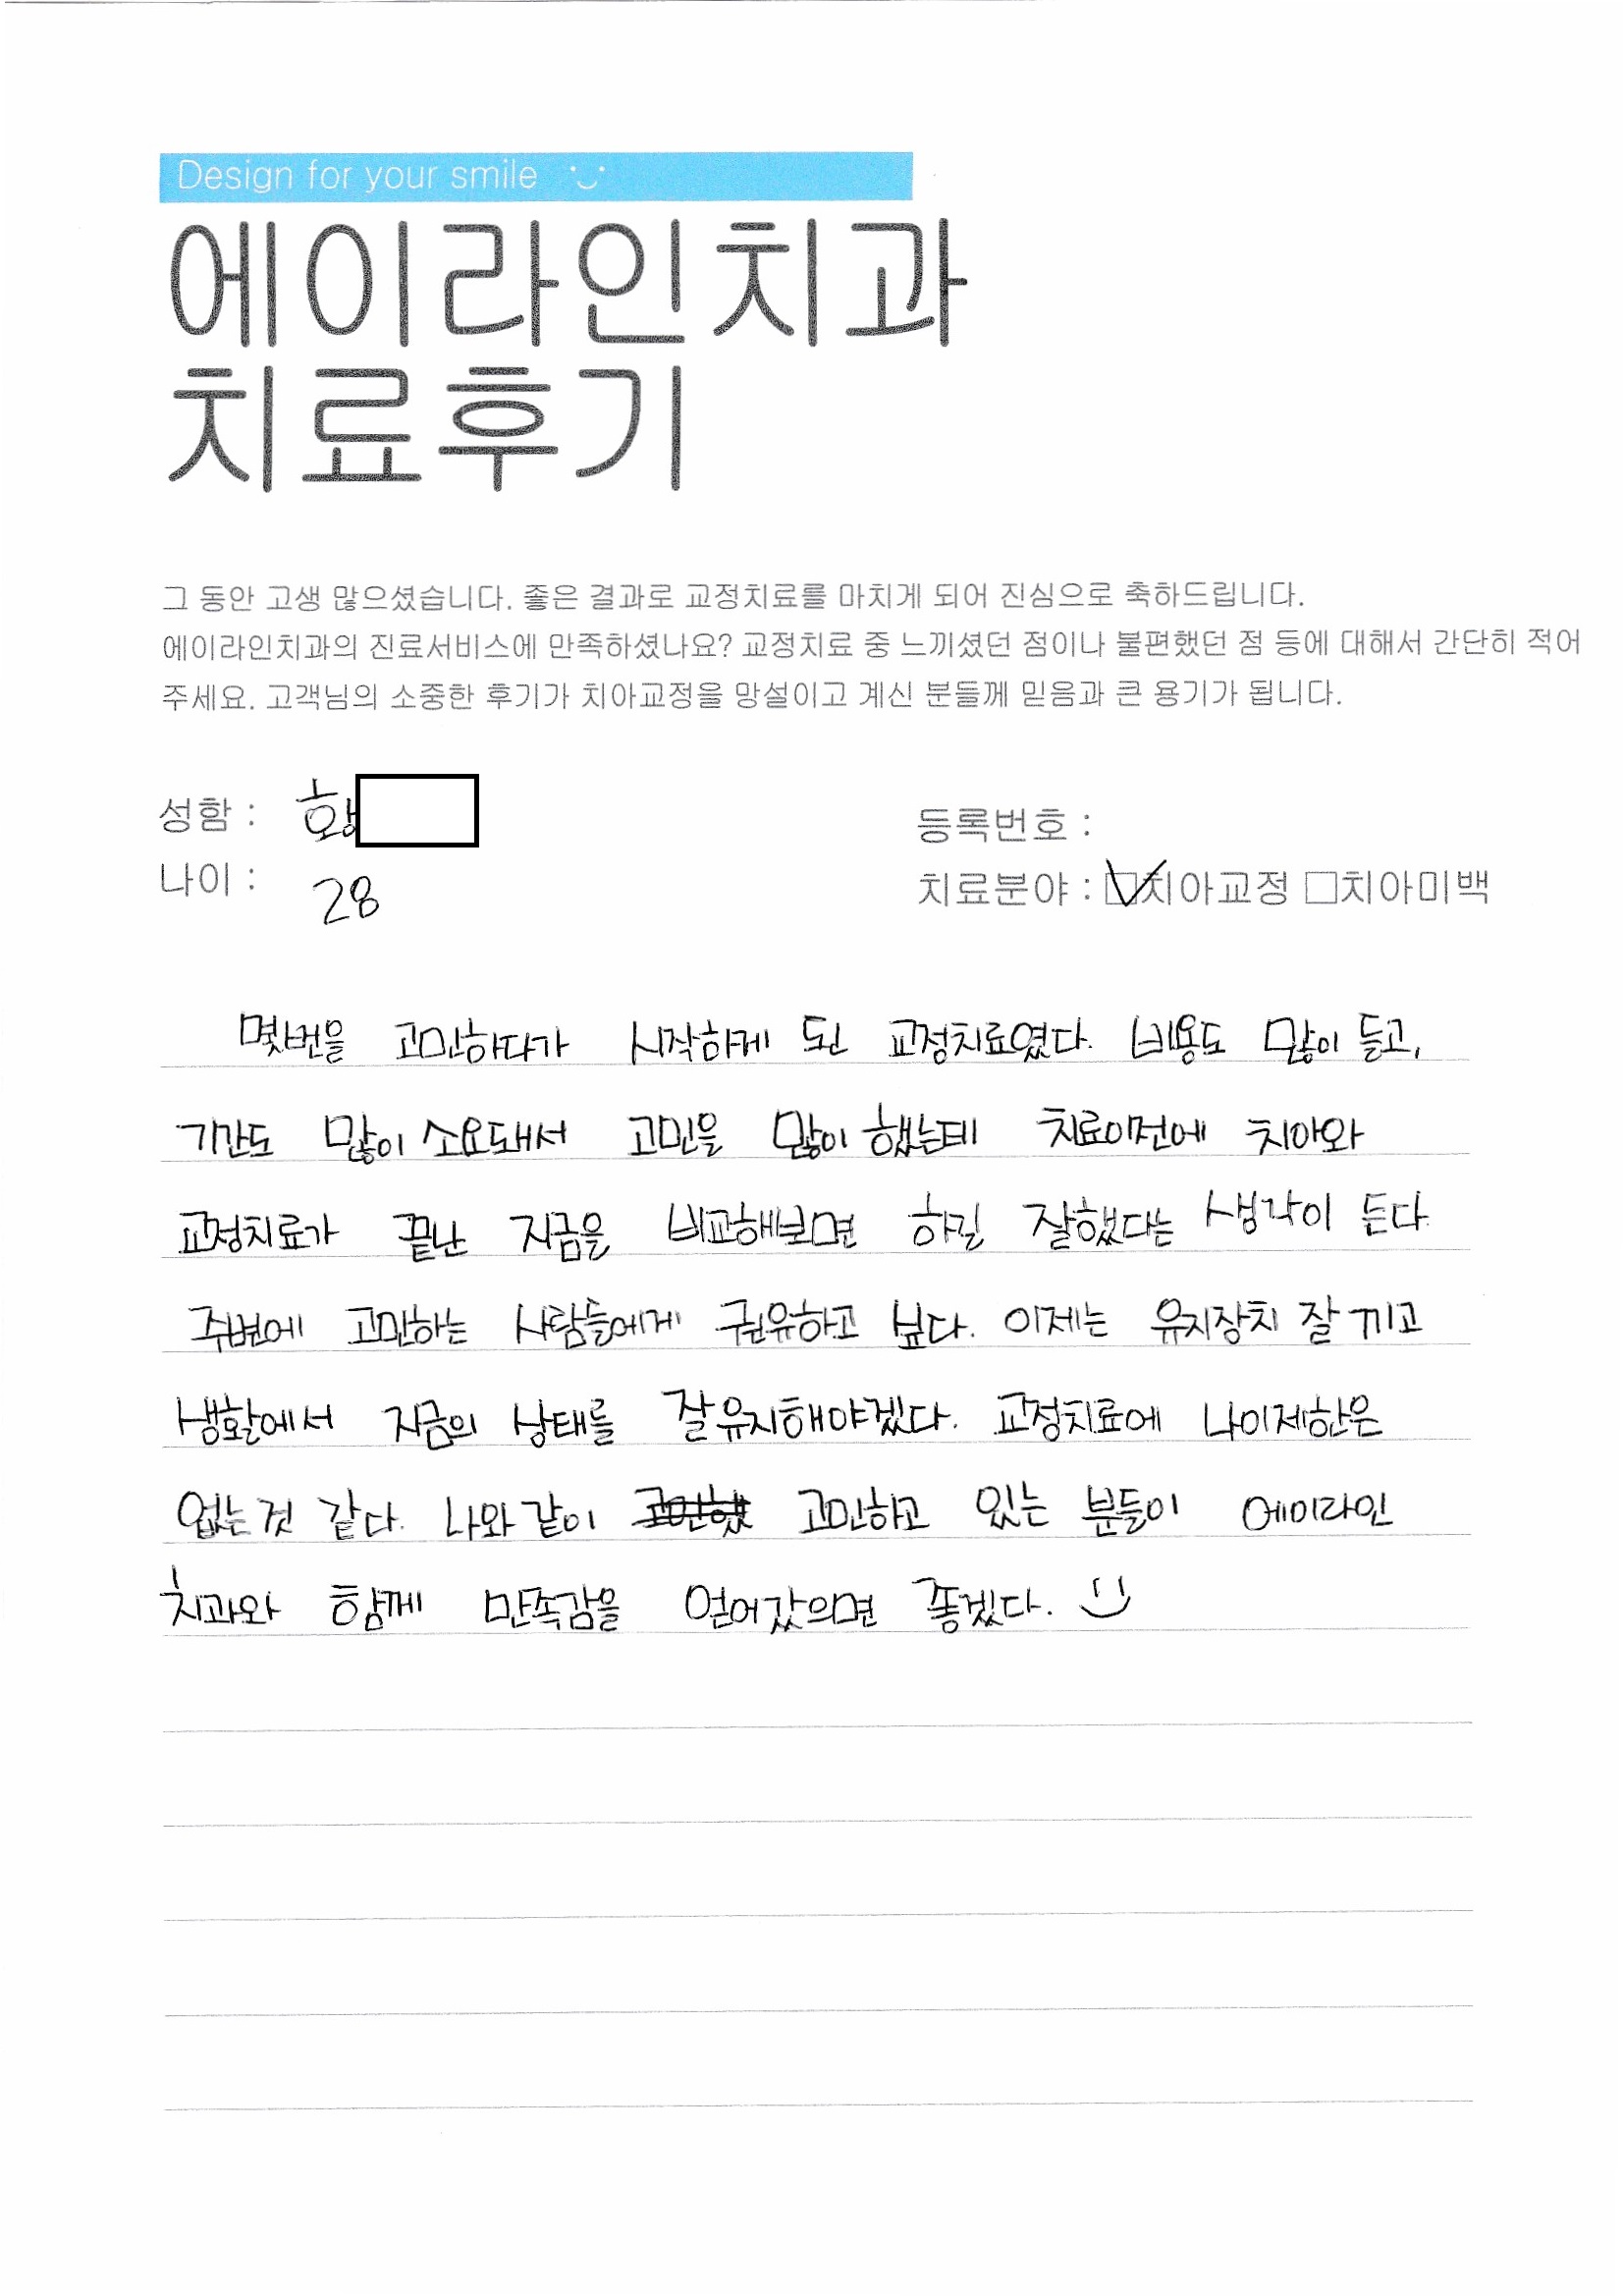 Design for your smile
에이라인치과
치료후기
그 동안 고생 많으셨습니다. 좋은 결과로 교정치료를 마치게 되어 진심으로 축하드립니다.
에이라인치과의 진료서비스에 만족하셨나요? 교정치료 중 느끼셨던 점이나 불편했던 점 등에 대해서 간단히 적어
주세요. 고객님의 소중한 후기가 치아교정을 망설이고 계신 분들께 믿음과 큰 용기가 됩니다.
성함 :
등록번호 :
나이 : 28
치료분야 : ☑치아교정 □치아미백
몇번을 고민하다가 시작하게 된 교정치료였다. 비용도 많이 들고,
기간도 많이 소요돼서 고민을 많이 했는데 치료이전에 치아와
교정치료가 끝난 지금을 비교해보면 하길 잘했다는 생각이 든다
주변에 고민하는 사람들에게 권유하고 싶다. 이제는 유지장치 잘 끼고
생활에서 지금의 상태를 잘유지해야겠다. 교정치료에 나이제한은
없는것 같다. 나와같이 고민하고 있는 분들이 에이라인
치과와 함께 만족감을 얻어갔으면 좋겠다.